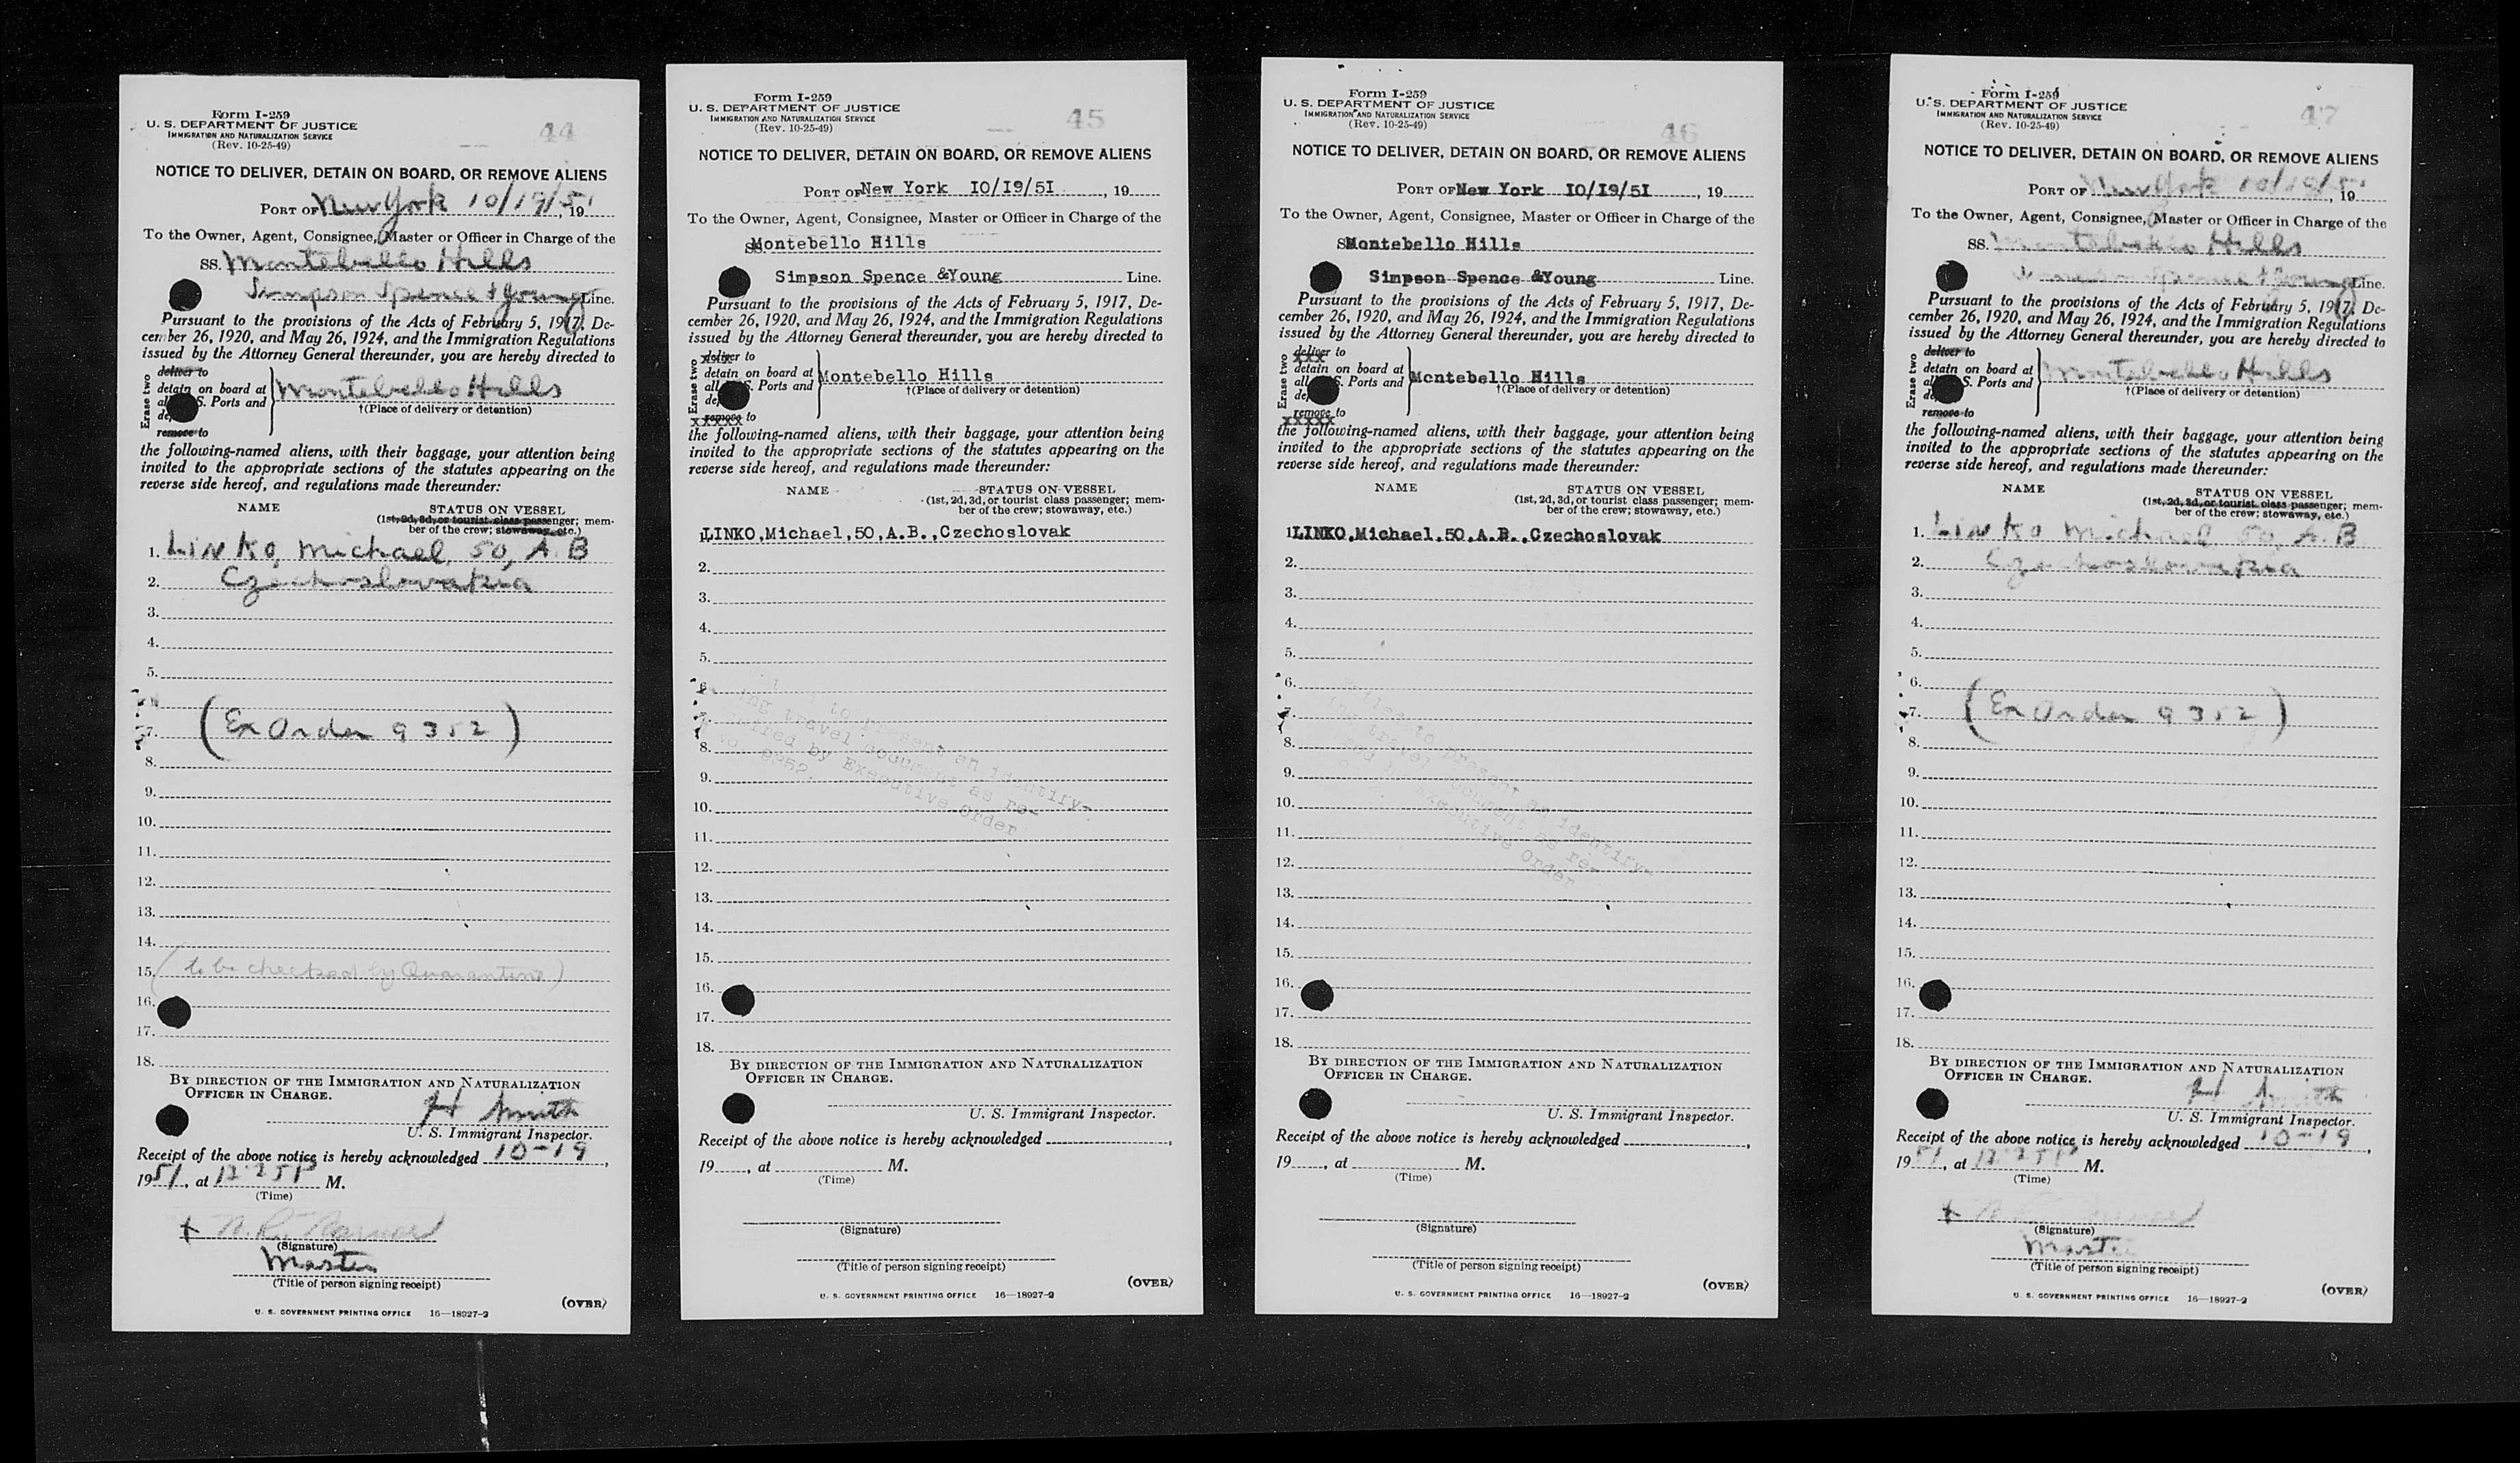 Form I-259
U. S. DEPARTMENT OF JUSTICE
IMMIGRATION AND NATURALIZATION SERVICE
(Rev. 10-25-49)
44
NOTICE TO DELIVER, DETAIN ON BOARD, OR REMOVE ALIENS
PORT OF New York 10/19/51, 19
To the Owner, Agent, Consignee, Master or Officer in Charge of the
SS. Montebello Hills
Simpson Spence & Young Line.
Pursuant to the provisions of the Acts of February 5, 1917, De-
cember 26, 1920, and May 26, 1924, and the Immigration Regulations
issued by the Attorney General thereunder, you are hereby directed to
Erase two
deliver to
detain on board at
S. Ports and
remove to
Montebello Hills
†(Place of delivery or detention)
the following-named aliens, with their baggage, your attention being
invited to the appropriate sections of the statutes appearing on the
reverse side hereof, and regulations made thereunder:
NAME STATUS ON VESSEL
(1st, 2d, 3d, or tourist class passenger; mem-
ber of the crew; stowaway, etc.)
1. LINKO, Michael, 50, A.B
2. Czechoslovakia
3.
4.
5.
7. (Ex Order 9352)
8.
9.
10.
11.
12.
13.
14.
15. (to be checked by Quarantine)
16.
17.
18.
BY DIRECTION OF THE IMMIGRATION AND NATURALIZATION
OFFICER IN CHARGE.
H Smith
U. S. Immigrant Inspector.
Receipt of the above notice is hereby acknowledged 10-19,
1951, at 12:25P M.
(Time)
(Signature)
Master
(Title of person signing receipt)
(OVER)
U. S. GOVERNMENT PRINTING OFFICE 16—18927-2
Form I-259
U. S. DEPARTMENT OF JUSTICE
IMMIGRATION AND NATURALIZATION SERVICE
(Rev. 10-25-49)
45
NOTICE TO DELIVER, DETAIN ON BOARD, OR REMOVE ALIENS
PORT OF New York IO/I9/5I, 19
To the Owner, Agent, Consignee, Master or Officer in Charge of the
SS. Montebello Hills
Simpson Spence &Young Line.
Pursuant to the provisions of the Acts of February 5, 1917, De-
cember 26, 1920, and May 26, 1924, and the Immigration Regulations
issued by the Attorney General thereunder, you are hereby directed to
Erase two
deliver to
detain on board at
all S. Ports and
remove to
Montebello Hills
†(Place of delivery or detention)
the following-named aliens, with their baggage, your attention being
invited to the appropriate sections of the statutes appearing on the
reverse side hereof, and regulations made thereunder:
NAME STATUS ON VESSEL
(1st, 2d, 3d, or tourist class passenger; mem-
ber of the crew; stowaway, etc.)
1. LINKO,Michael,50,A.B.,Czechoslovak
2.
3.
4.
5.
6.
7.
8.
to present an identify-
ing travel document as re-
quired by Executive Order
9352.
9.
10.
11.
12.
13.
14.
15.
16.
17.
18.
BY DIRECTION OF THE IMMIGRATION AND NATURALIZATION
OFFICER IN CHARGE.
U. S. Immigrant Inspector.
Receipt of the above notice is hereby acknowledged ,
19 , at M.
(Time)
(Signature)
(Title of person signing receipt)
(OVER)
U. S. GOVERNMENT PRINTING OFFICE 16—18927-2
Form I-259
U. S. DEPARTMENT OF JUSTICE
IMMIGRATION AND NATURALIZATION SERVICE
(Rev. 10-25-49)
46
NOTICE TO DELIVER, DETAIN ON BOARD, OR REMOVE ALIENS
PORT OF New York IO/I9/5I, 19
To the Owner, Agent, Consignee, Master or Officer in Charge of the
SMontebello Hills
Simpson Spence &Young Line.
Pursuant to the provisions of the Acts of February 5, 1917, De-
cember 26, 1920, and May 26, 1924, and the Immigration Regulations
issued by the Attorney General thereunder, you are hereby directed to
Erase two
deliver to
detain on board at
all S. Ports and
remove to
Montebello Hills
†(Place of delivery or detention)
the following-named aliens, with their baggage, your attention being
invited to the appropriate sections of the statutes appearing on the
reverse side hereof, and regulations made thereunder:
NAME STATUS ON VESSEL
(1st, 2d, 3d, or tourist class passenger; mem-
ber of the crew; stowaway, etc.)
1. LINKO,Michael,50,A.B.,Czechoslovak
2.
3.
4.
5.
6.
7.
8.
Failed to present an identify-
ing travel document as re-
Executive Order
9.
10.
11.
12.
13.
14.
15.
16.
17.
18.
BY DIRECTION OF THE IMMIGRATION AND NATURALIZATION
OFFICER IN CHARGE.
U. S. Immigrant Inspector.
Receipt of the above notice is hereby acknowledged ,
19 , at M.
(Time)
(Signature)
(Title of person signing receipt)
(OVER)
U. S. GOVERNMENT PRINTING OFFICE 16—18927-2
Form I-259
U. S. DEPARTMENT OF JUSTICE
IMMIGRATION AND NATURALIZATION SERVICE
(Rev. 10-25-49)
47
NOTICE TO DELIVER, DETAIN ON BOARD, OR REMOVE ALIENS
PORT OF New York 10/19/51, 19
To the Owner, Agent, Consignee, Master or Officer in Charge of the
SS. Montebello Hills
Simpson Spence & Young Line.
Pursuant to the provisions of the Acts of February 5, 1917, De-
cember 26, 1920, and May 26, 1924, and the Immigration Regulations
issued by the Attorney General thereunder, you are hereby directed to
Erase two
deliver to
detain on board at
S. Ports and
remove to
Montebello Hills
†(Place of delivery or detention)
the following-named aliens, with their baggage, your attention being
invited to the appropriate sections of the statutes appearing on the
reverse side hereof, and regulations made thereunder:
NAME STATUS ON VESSEL
(1st, 2d, 3d, or tourist class passenger; mem-
ber of the crew; stowaway, etc.)
1. LINKO Michael 50, A.B
2. Czechoslovakia
3.
4.
5.
6.
7. (Ex Order 9352)
8.
9.
10.
11.
12.
13.
14.
15.
16.
17.
18.
BY DIRECTION OF THE IMMIGRATION AND NATURALIZATION
OFFICER IN CHARGE.
H Smith
U. S. Immigrant Inspector.
Receipt of the above notice is hereby acknowledged 10-19,
1951, at 12:25P M.
(Time)
(Signature)
Master
(Title of person signing receipt)
(OVER)
U. S. GOVERNMENT PRINTING OFFICE 16—18927-2